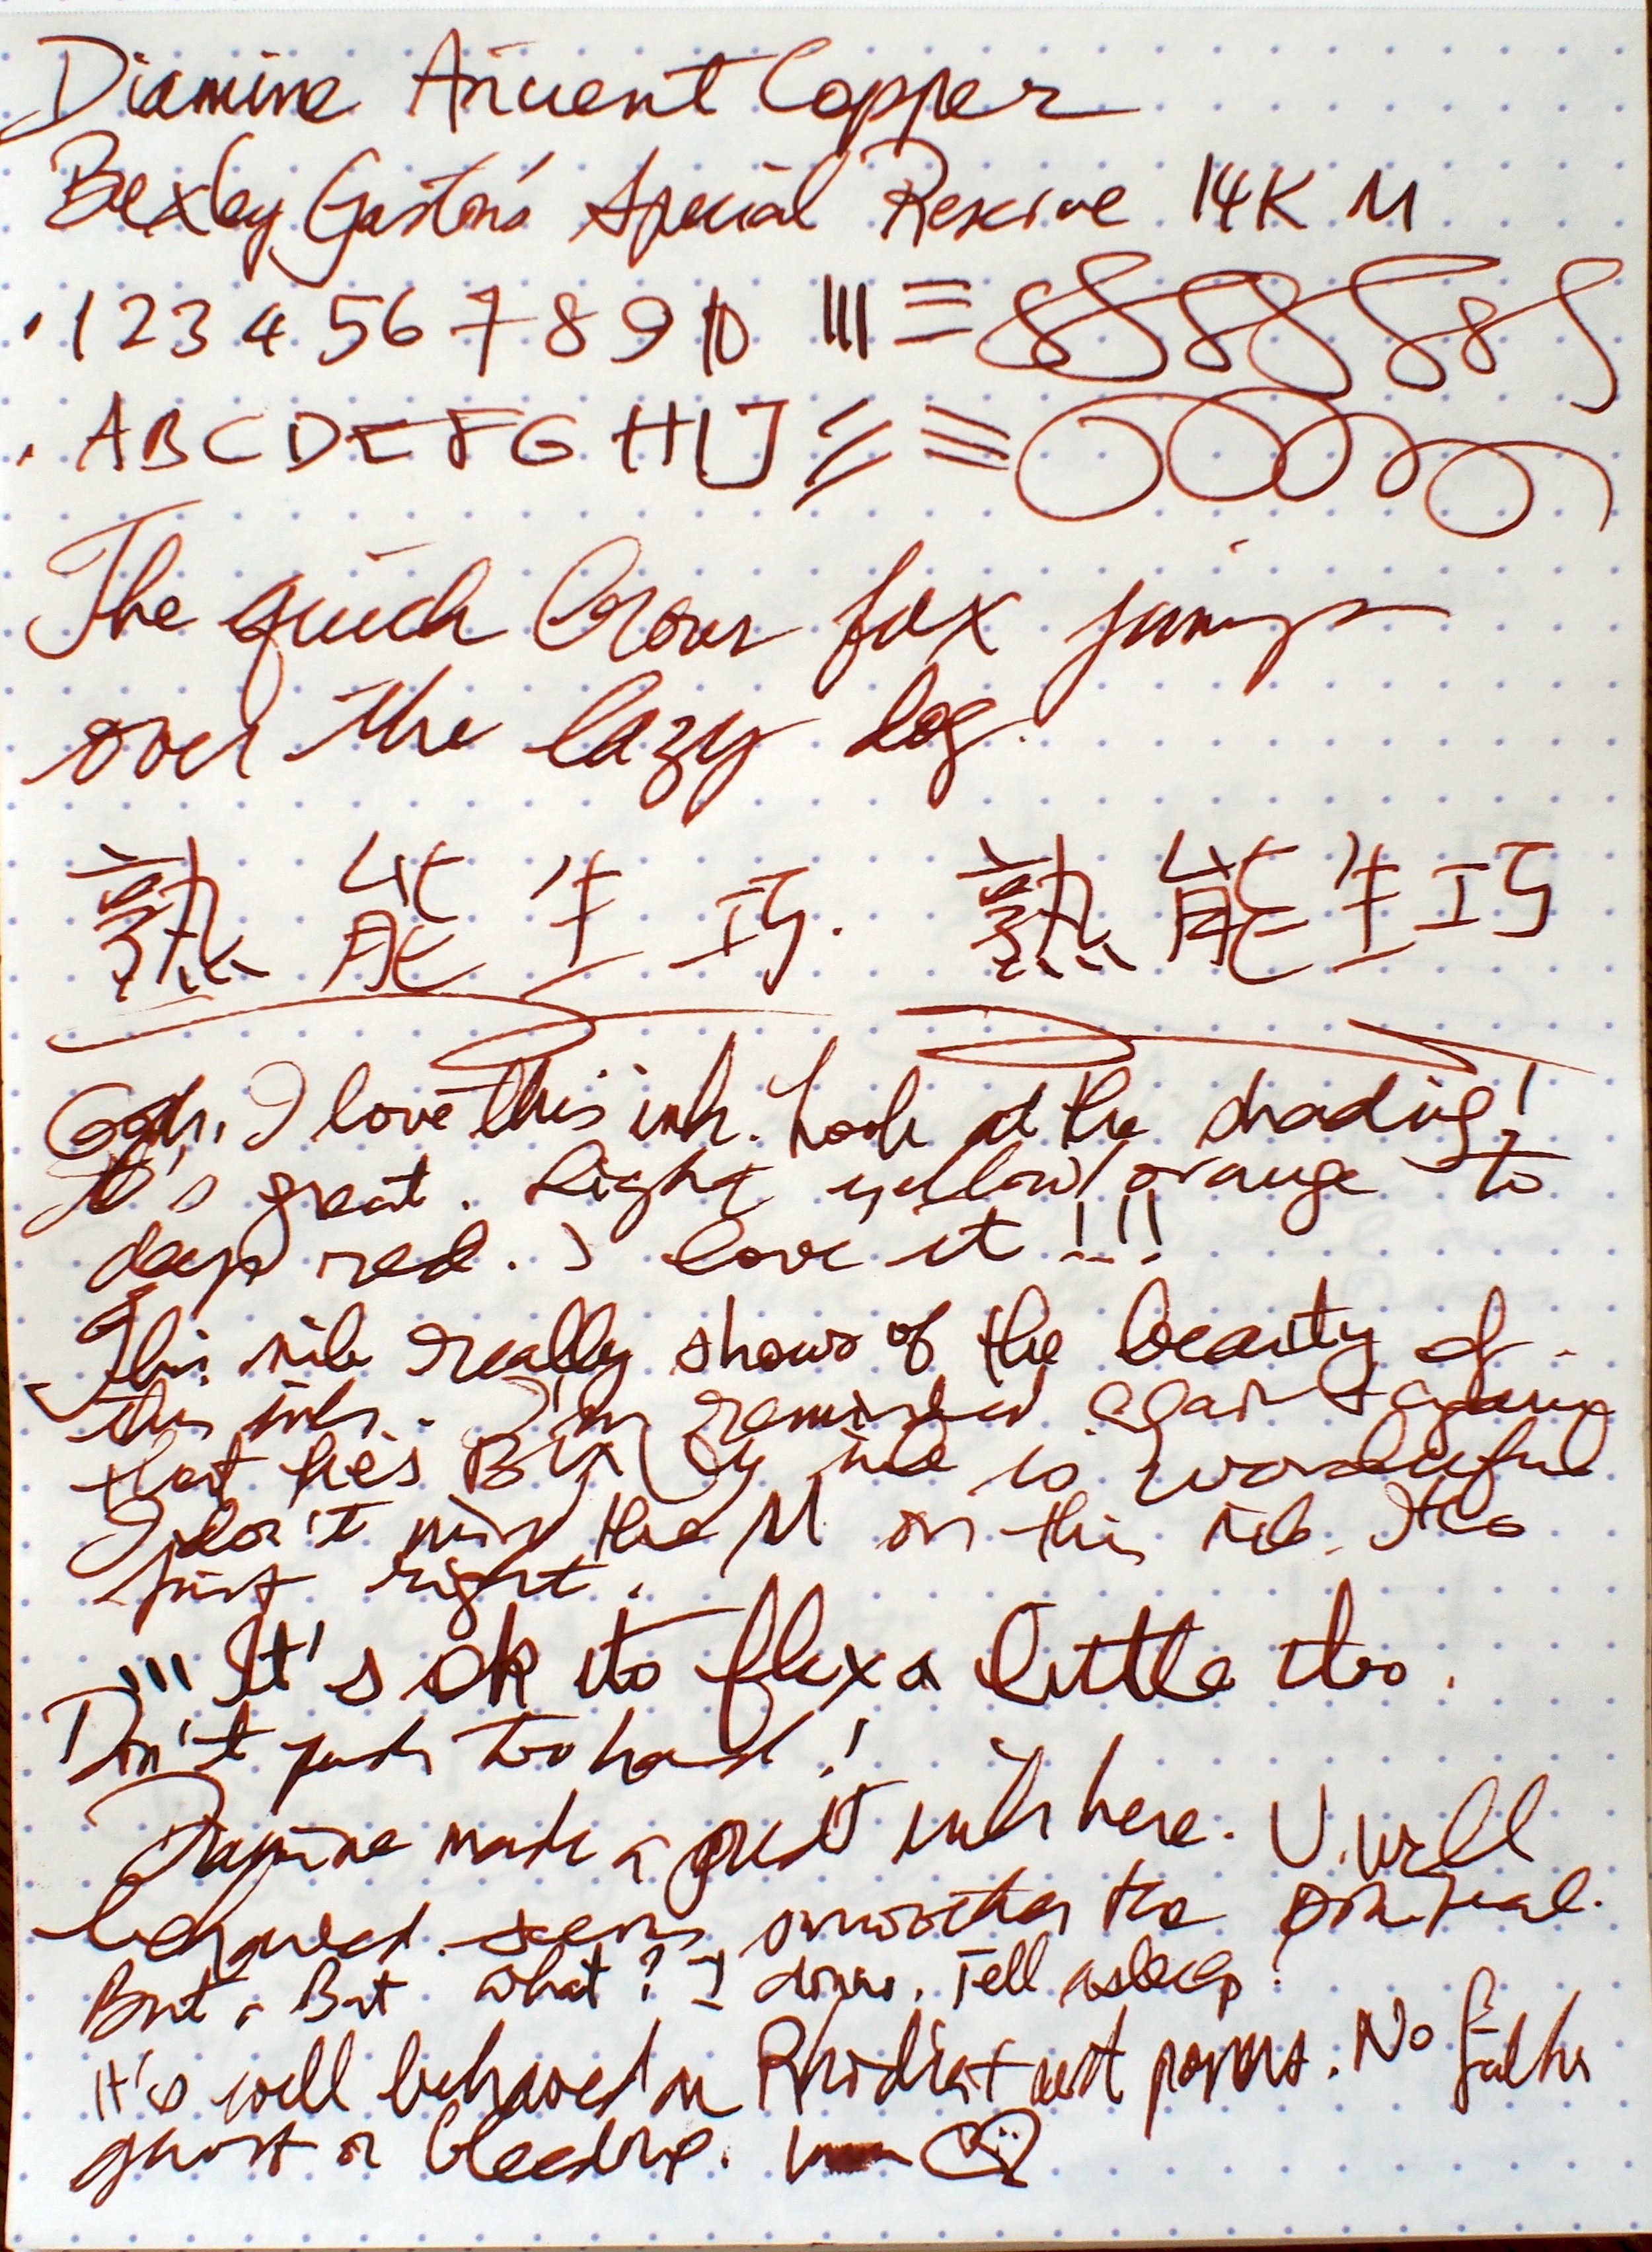 Diamine Ancient Copper
Bexley Gaston's Special Reserve 14K M
1 2 3 4 5 6 7 8 9 10
A B C D E F G H I J
The quick brown fox jumps
over the lazy dog.
熟能生巧. 熟能生巧
Gosh, I love this ink. Look at the shading!
It's great. Light yellow/orange to
deep red. I love it!!!
This nib really shows of the beauty of
this ink. I'm reminded again & again
that Bexley nib is wonderful
I don't mind the M on this nib. It's
just right.
It's ok to flex a little too.
Don't push too hard!
Diamine made a great ink here. Well
behaved. seems smoother the
But. But what? I Fell asleep?
It's well behaved on Rhodia + most papers. No
ghost or bleeding.